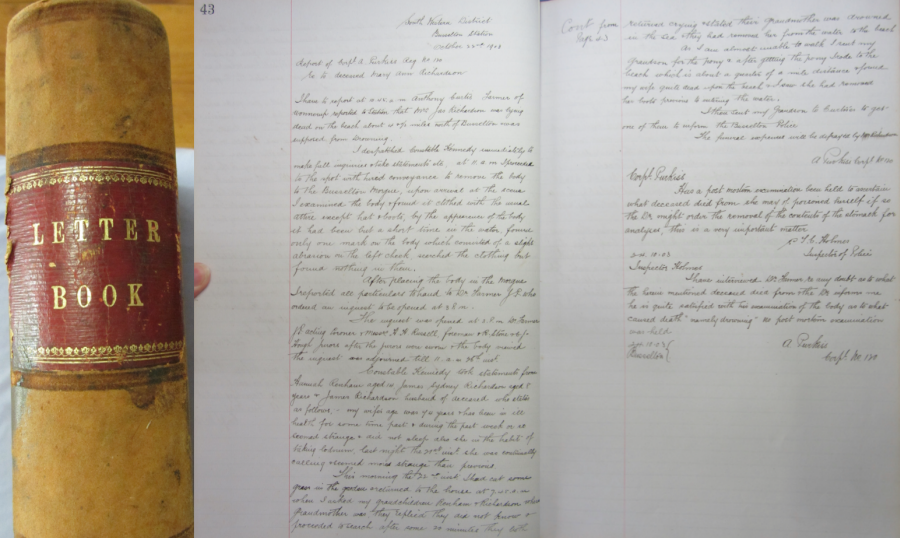 LETTER
BOOK
43
South Western District
Busselton Station
October 22nd 1903
Report of Corpl A. Purkess Reg No 120
re to deceased Mary Ann Richardson
I have to report at a.m. Anthony Carter Farmer of
Wonnerup reported to Station that Mrs Jas Richardson was lying
dead on the beach about miles north of Busselton was
supposed from Drowning.
I despatched Constable Kennedy immediately to
make full inquiries & take statements etc. at a.m. I proceeded
to the spot with hired conveyance to remove the body
to the Busselton Morgue, upon arrival at the scene
I examined the body & found it clothed with the usual
attire except hat & boots, by the appearance of the body
it had been but a short time in the water, found
only one mark on the body which consisted of a slight
abrasion on the left cheek, searched the clothing but
found nothing in them.
After placing the body in the Morgue
I reported all particulars to hand to Dr J.P. who
ordered an inquest to be opened at 3 p.m.
The inquest was opened at 3 p.m. Dr
J.P. acting Coroner & Messrs Russell foreman &
jurors after the jurors were sworn & the body viewed
the inquest was adjourned till a.m. 26th inst
Constable Kennedy took statements from
Hannah Renham aged 10 James Sydney Richardson aged 8
years & James Richardson husband of deceased who states
as follows, my wifes age was years & has been in ill
health for some time past & during the past week or so
seemed strange & did not sleep also she in the habit of
taking last night the inst she was continually
calling & seemed more strange than previous.
This morning the 22nd inst I had cut some
grass in the garden & returned to the house at a.m.
when I asked my grandchildren Renham & Richardson where
grandmother was they replied they did not know &
proceeded to search after some 20 minutes they both
Cont from
Page 43
returned crying & stated their grandmother was drowned
in the sea & they had removed her from the water to the beach
As I am almost unable to walk I sent my
grandson for the pony & after getting the pony I rode to the
beach which is about a quarter of a mile distance & found
my wife quite dead upon the beach & I saw she had removed
her boots previous to entering the water.
I then sent my Grandson to Carter's to get
one of them to inform the Busselton Police
The funeral expenses will be defrayed by Richardson
A Purkess Corpl No 120
Corpl Purkess
Has a post mortem examination been held to ascertain
what deceased died from she may of poisoned herself if so
the Dr might order the removal of the contents of the stomach for
analyses, this is a very important matter
Holmes
Inspector of Police
10.03
Inspector Holmes
I have interviewed Dr re my doubt as to what
the above mentioned deceased died from & the Dr informs me
he is quite satisfied with his examination of the body as to what
caused death "namely drowning" no post mortem examination
was held
10.03
Busselton
A Purkess
Corpl No 120